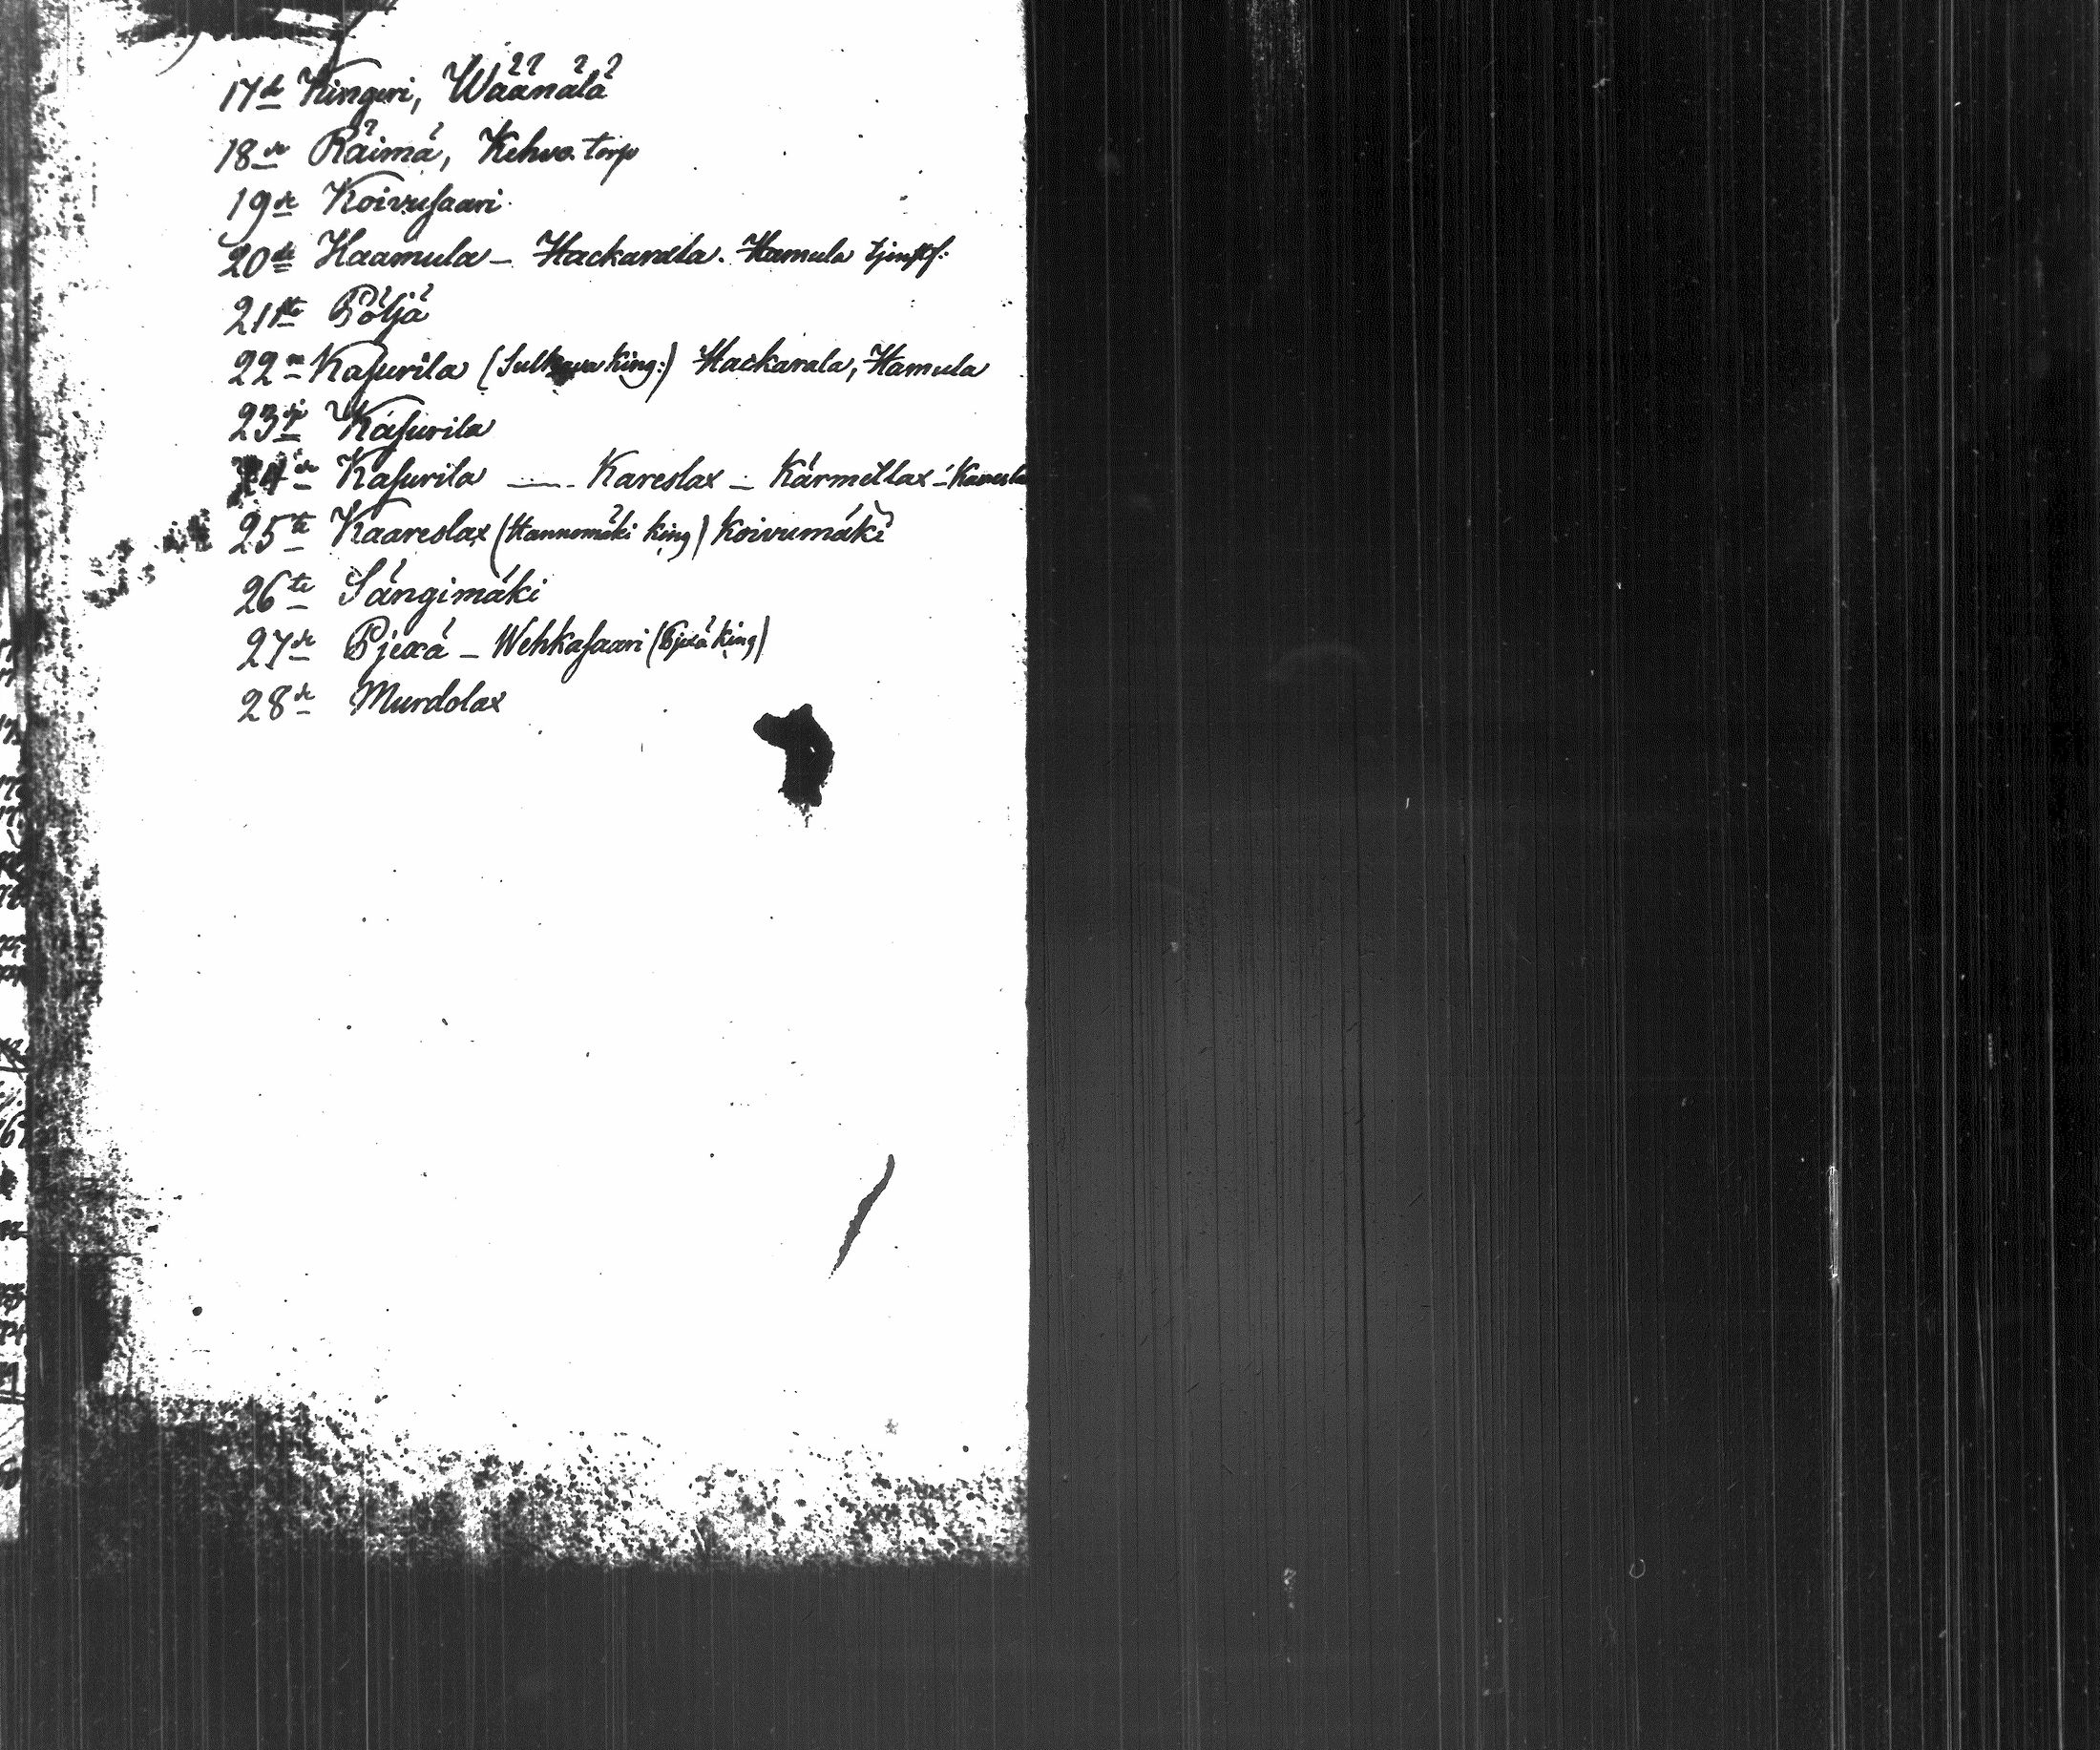 17de Kingeri, Wäänälä
18de Räimä, Kehvo torp
19de Koivusaari
20de Haamula – Hackarala. Hamula
21ste Pöljä
22ne Kasurila (Sulkava king:) Hackarala, Hamula
23dje Kasurila
24de Kasurila — Kareslax – Kärmellax – Kaaresla
25te Kaareslax (Hannomäki king) Koivumäki
26te Sängimäki
27de Pjexä – Wehkasaari (Pjexä king)
28de Murdolax